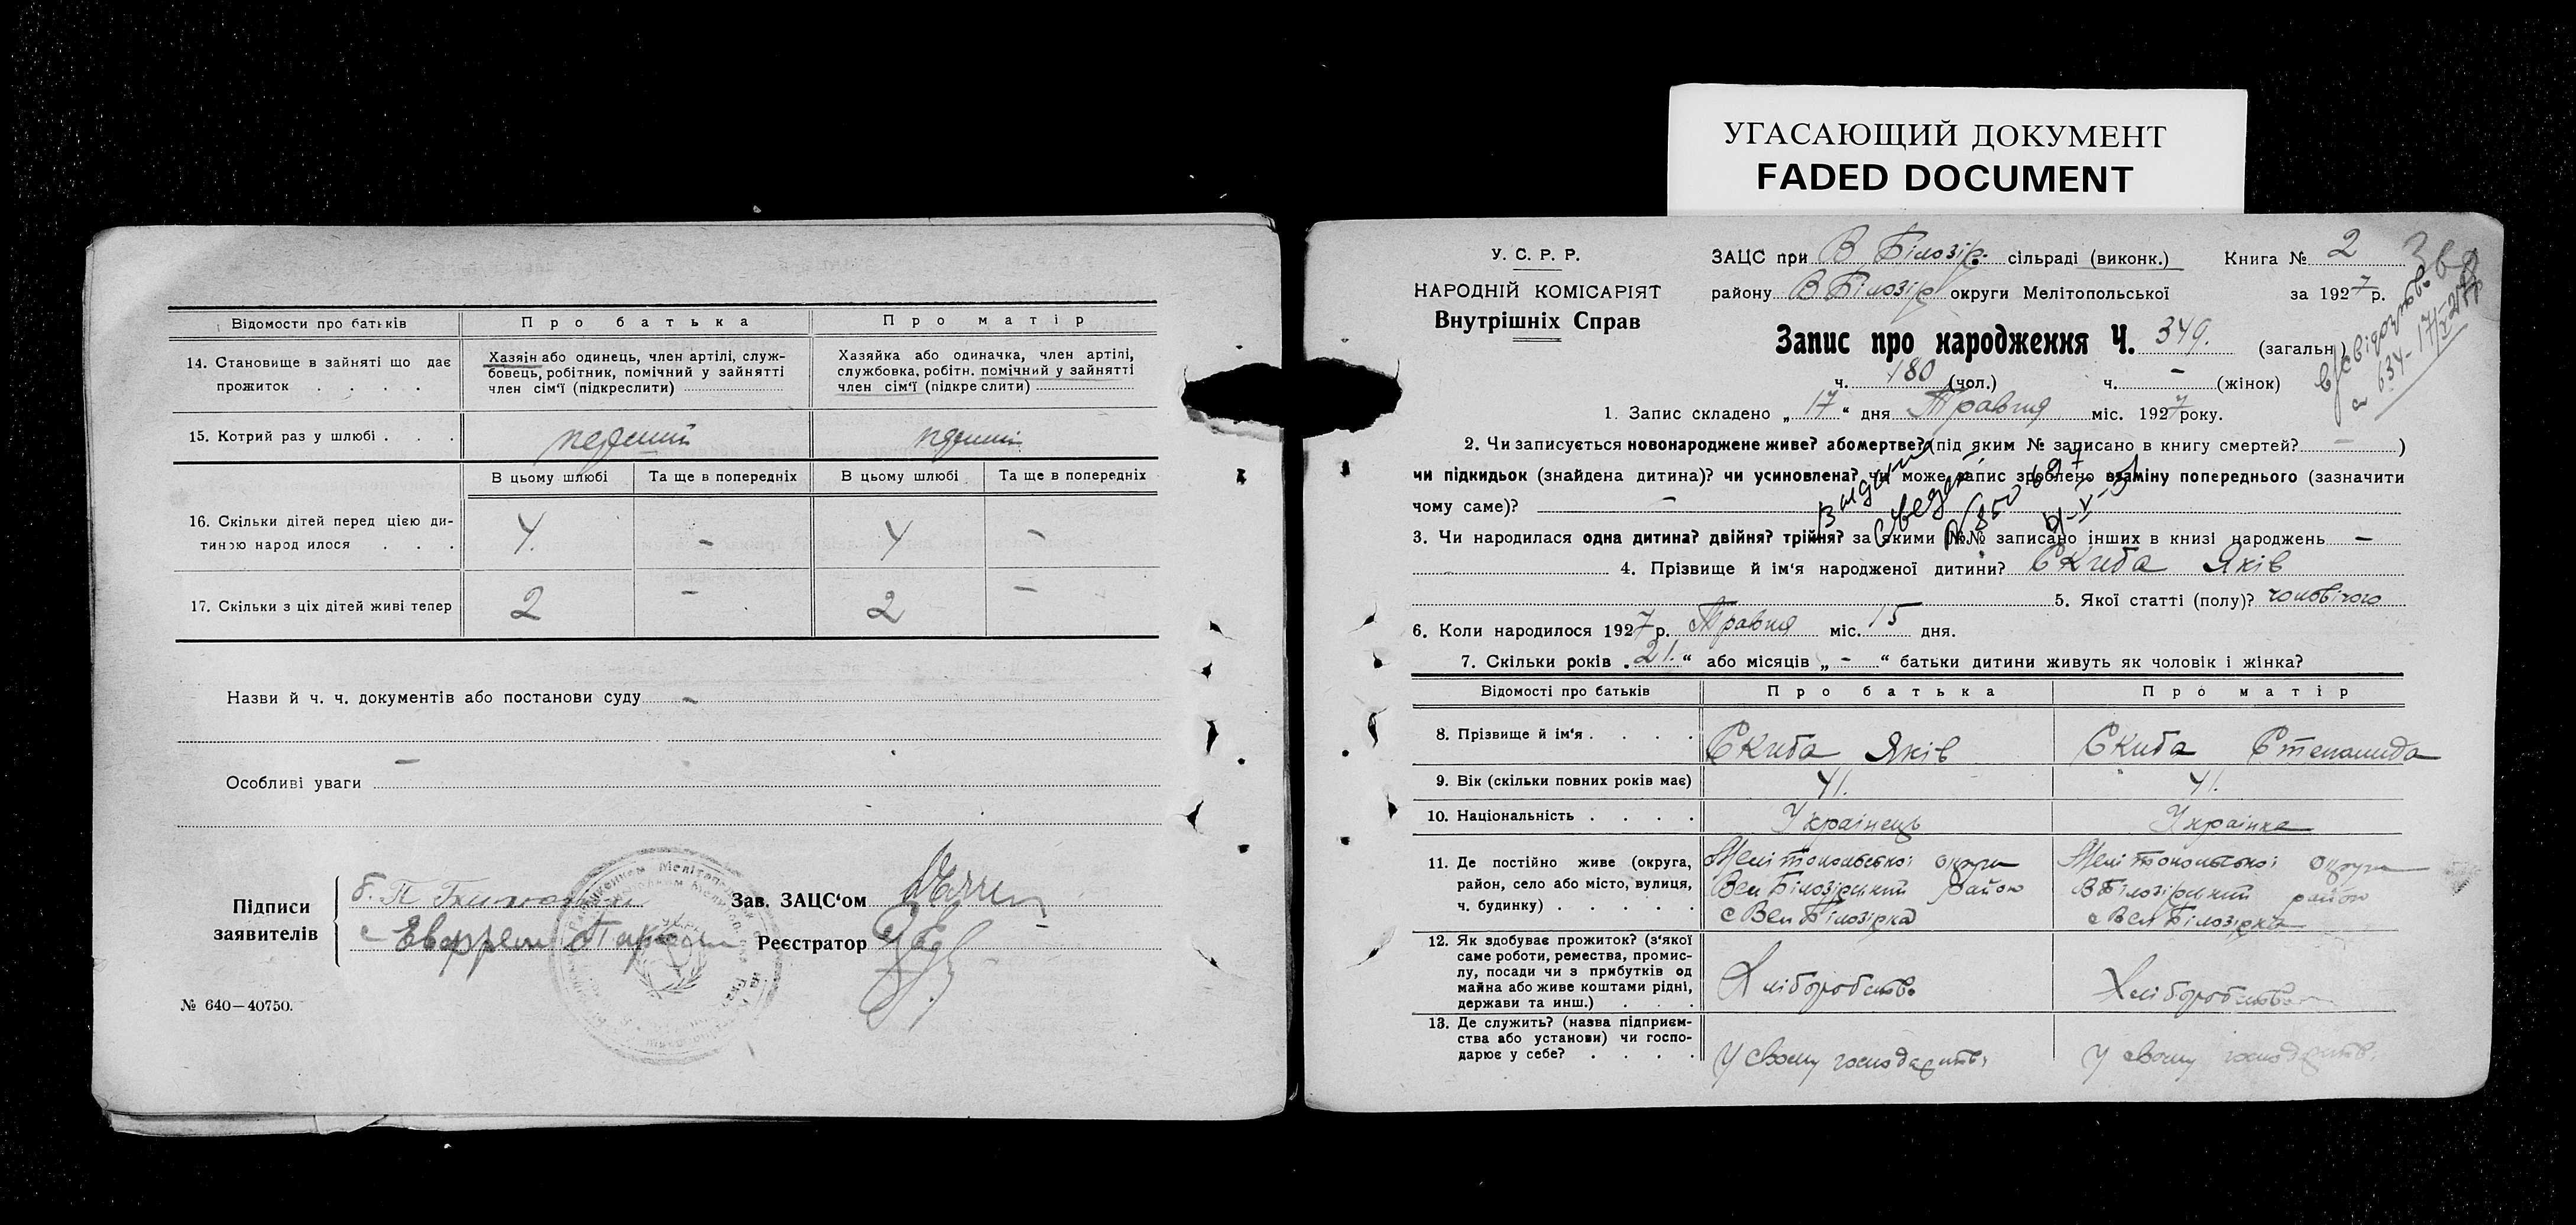 УГАСАЮЩИЙ ДОКУМЕНТ
FADED DOCUMENT
Відомости про батьків
Про батька
Про матір
14. Становище в зайняті що дає прожиток . . . .
Хазяін або одинець, член артілі, служ-
бовець, робітник, помічний у зайнятті
член сім'ї (підкреслити)
Хазяйка або одиначка, член артілі,
службовка, робітн. помічний у зайнятті
член сім'ї (підкреслити)
15. Котрий раз у шлюбі . . .
В цьому шлюбі
Та ще в попередніх
В цьому шлюбі
Та ще в попередніх
16. Скільки дітей перед цією ди-
тиною народилося . . .
4 - 4 -
17. Скільки з ціх дітей живі тепер
2 - 2 -
Назви й ч. ч. документів або постанови суду -
Особливі уваги -
Підписи
заявителів
Зав. ЗАЦС'ом
Реєстратор
№ 640—40750.
У. С. Р. Р.
НАРОДНІЙ КОМІСАРІЯТ
Внутрішніх Справ
ЗАЦС при В Білозір. сільраді (виконк.) Книга № 2
району В Білозір округи Мелітопольської за 1927 р.
Запис про народження Ч. 349. (загальн.)
ч. 180 (чол.) ч. - (жінок)
1. Запис складено „17“ дня Травня міс. 1927 року.
2. Чи записується новонароджене живе? або мертве? (під яким № записано в книгу смертей? - )
чи підкидьок (знайдена дитина)? чи усиновлена? чи може запис зроблено взаміну попереднього (зазначити
чому саме)? -
3. Чи народилася одна дитина? двійня? трійня? за якими №№ записано інших в книзі народжень -
4. Прізвище й ім'я народженої дитини? Скиба Яків
5. Якої статті (полу)? чоловічого
6. Коли народилося 1927 р. Травня міс. 15 дня.
7. Скільки років „21.“ або місяців „-“ батьки дитини живуть як чоловік і жінка?
Відомості про батьків
Про батька
Про матір
8. Прізвище й ім'я . . . .
Скиба Яків
Скиба Степанида
9. Вік (скільки повних років має)
41.
41.
10. Національність . . . .
Українець
Українка
11. Де постійно живе (округа,
район, село або місто, вулиця,
ч. будинку) . . . . .
Мелітопольської округи
Вел Білозірський район
с Вел Білозірка
Мелітопольської округи
В Білозірський район
с Вел Білозірка
12. Як здобуває прожиток? (з'якої
саме роботи, ремества, промис-
лу, посади чи з прибутків од
майна або живе коштами рідні,
держави та инш.) . . .
Хліборобство
Хліборобство
13. Де служить? (назва підприєм-
ства або установи) чи госпо-
дарює у себе? . . . .
У своєму
У своєму